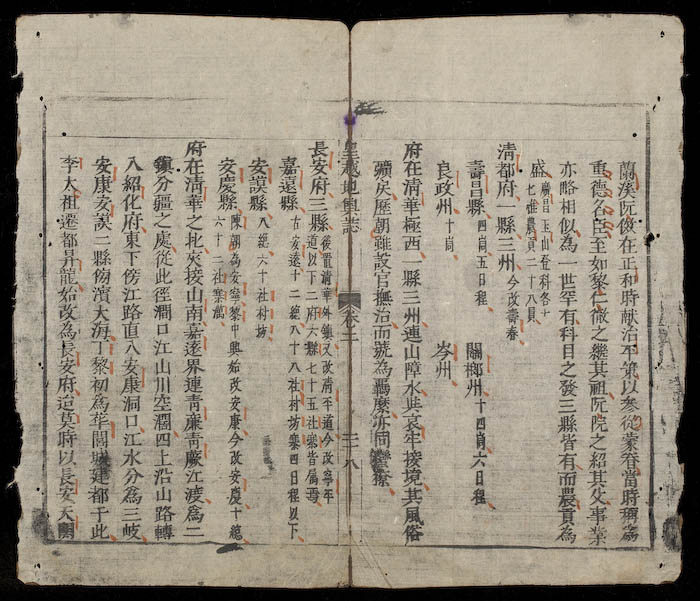 蘭溪阮俊在正和時献治平第以參從蒙眷當時稱爲
重德名臣至如黎仁傑之繼其祖阮院之紹其父事業
亦略相似為一世罕有科目之發三縣皆有而農貢為
盛 廣昌玉山登科各十七雄農貢二十八員
清都府一縣三州 今改壽春
壽昌縣 四崗五日程 關鄉州 十四崗六日程
良政州 十崗 岑州
府在清華極西一縣三州連山障水與哀牢接境其風俗
獷戾歷朝雖設官撫治而號為羈縻亦同蠻獠
皇越地輿誌 卷二 二八
長安府三縣 後置清華外鎮又改清平道今改寧平道以下二府六縣七十五社寨皆属焉
嘉遠縣 古安遠十二總八十八社村坊寨四日程以下
安謨縣 八總六十社村坊
安慶縣 陳朝為安寧黎中興始改安康今改安慶十總六十二社寨萬
府在清華之北夾接山南嘉遂界連青廉青厥江渡為二
鎮分疆之處從此徑澗口江山川空濶四上沿山路轉
入紹化府東下傍江路直入安康洞口江水分為三岐
安康安謨二縣傍濱大海丁黎初為華閭城建都于此
李太祖遷都昇龍始改為長安府迨莫時以長安天關